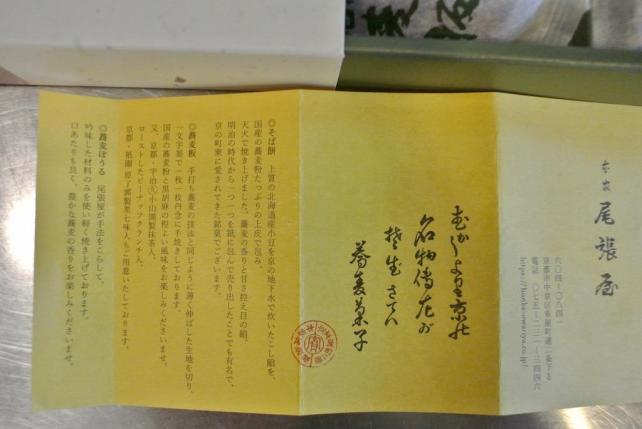 本家 尾張屋
六〇四-〇八四一
京都市中京区車屋町通二条下る
電話 〇七五-二三一-三四四六
https://honke-owariya.co.jp/
むかしより京の
名物傳左が
蕎麦菓子
◎そば餅 上質の北海道産小豆を京の地下水で炊いたこし餡を、
国産の蕎麦粉たっぷりの上皮で包み、
天火で焼き上げました。蕎麦の香りと甘さ控え目の餡。
明治の時代から一つ一つを紙に包んで売り出したことでも有名で、
京の町衆に愛されてきた銘菓でございます。
◎蕎麦板 手打ち蕎麦の技法と同じように薄く伸ばした生地を切り、
一文字釜で一枚一枚丹念に手焼きしております。
国産の蕎麦粉と黒胡麻の程よい風味をお楽しみくださいませ。
又、京都・宇治丸久小山園製抹茶入、
ローストしたピーナッツクランチ入、
京都・祇園 原了郭製黒七味入もご用意いたしております。
◎蕎麦ぼうる 尾張屋が手法をこらして、
吟味した材料のみを使い軽く焼き上げております。
口あたりも良く、豊かな蕎麦の香りをお楽しみくださいませ。